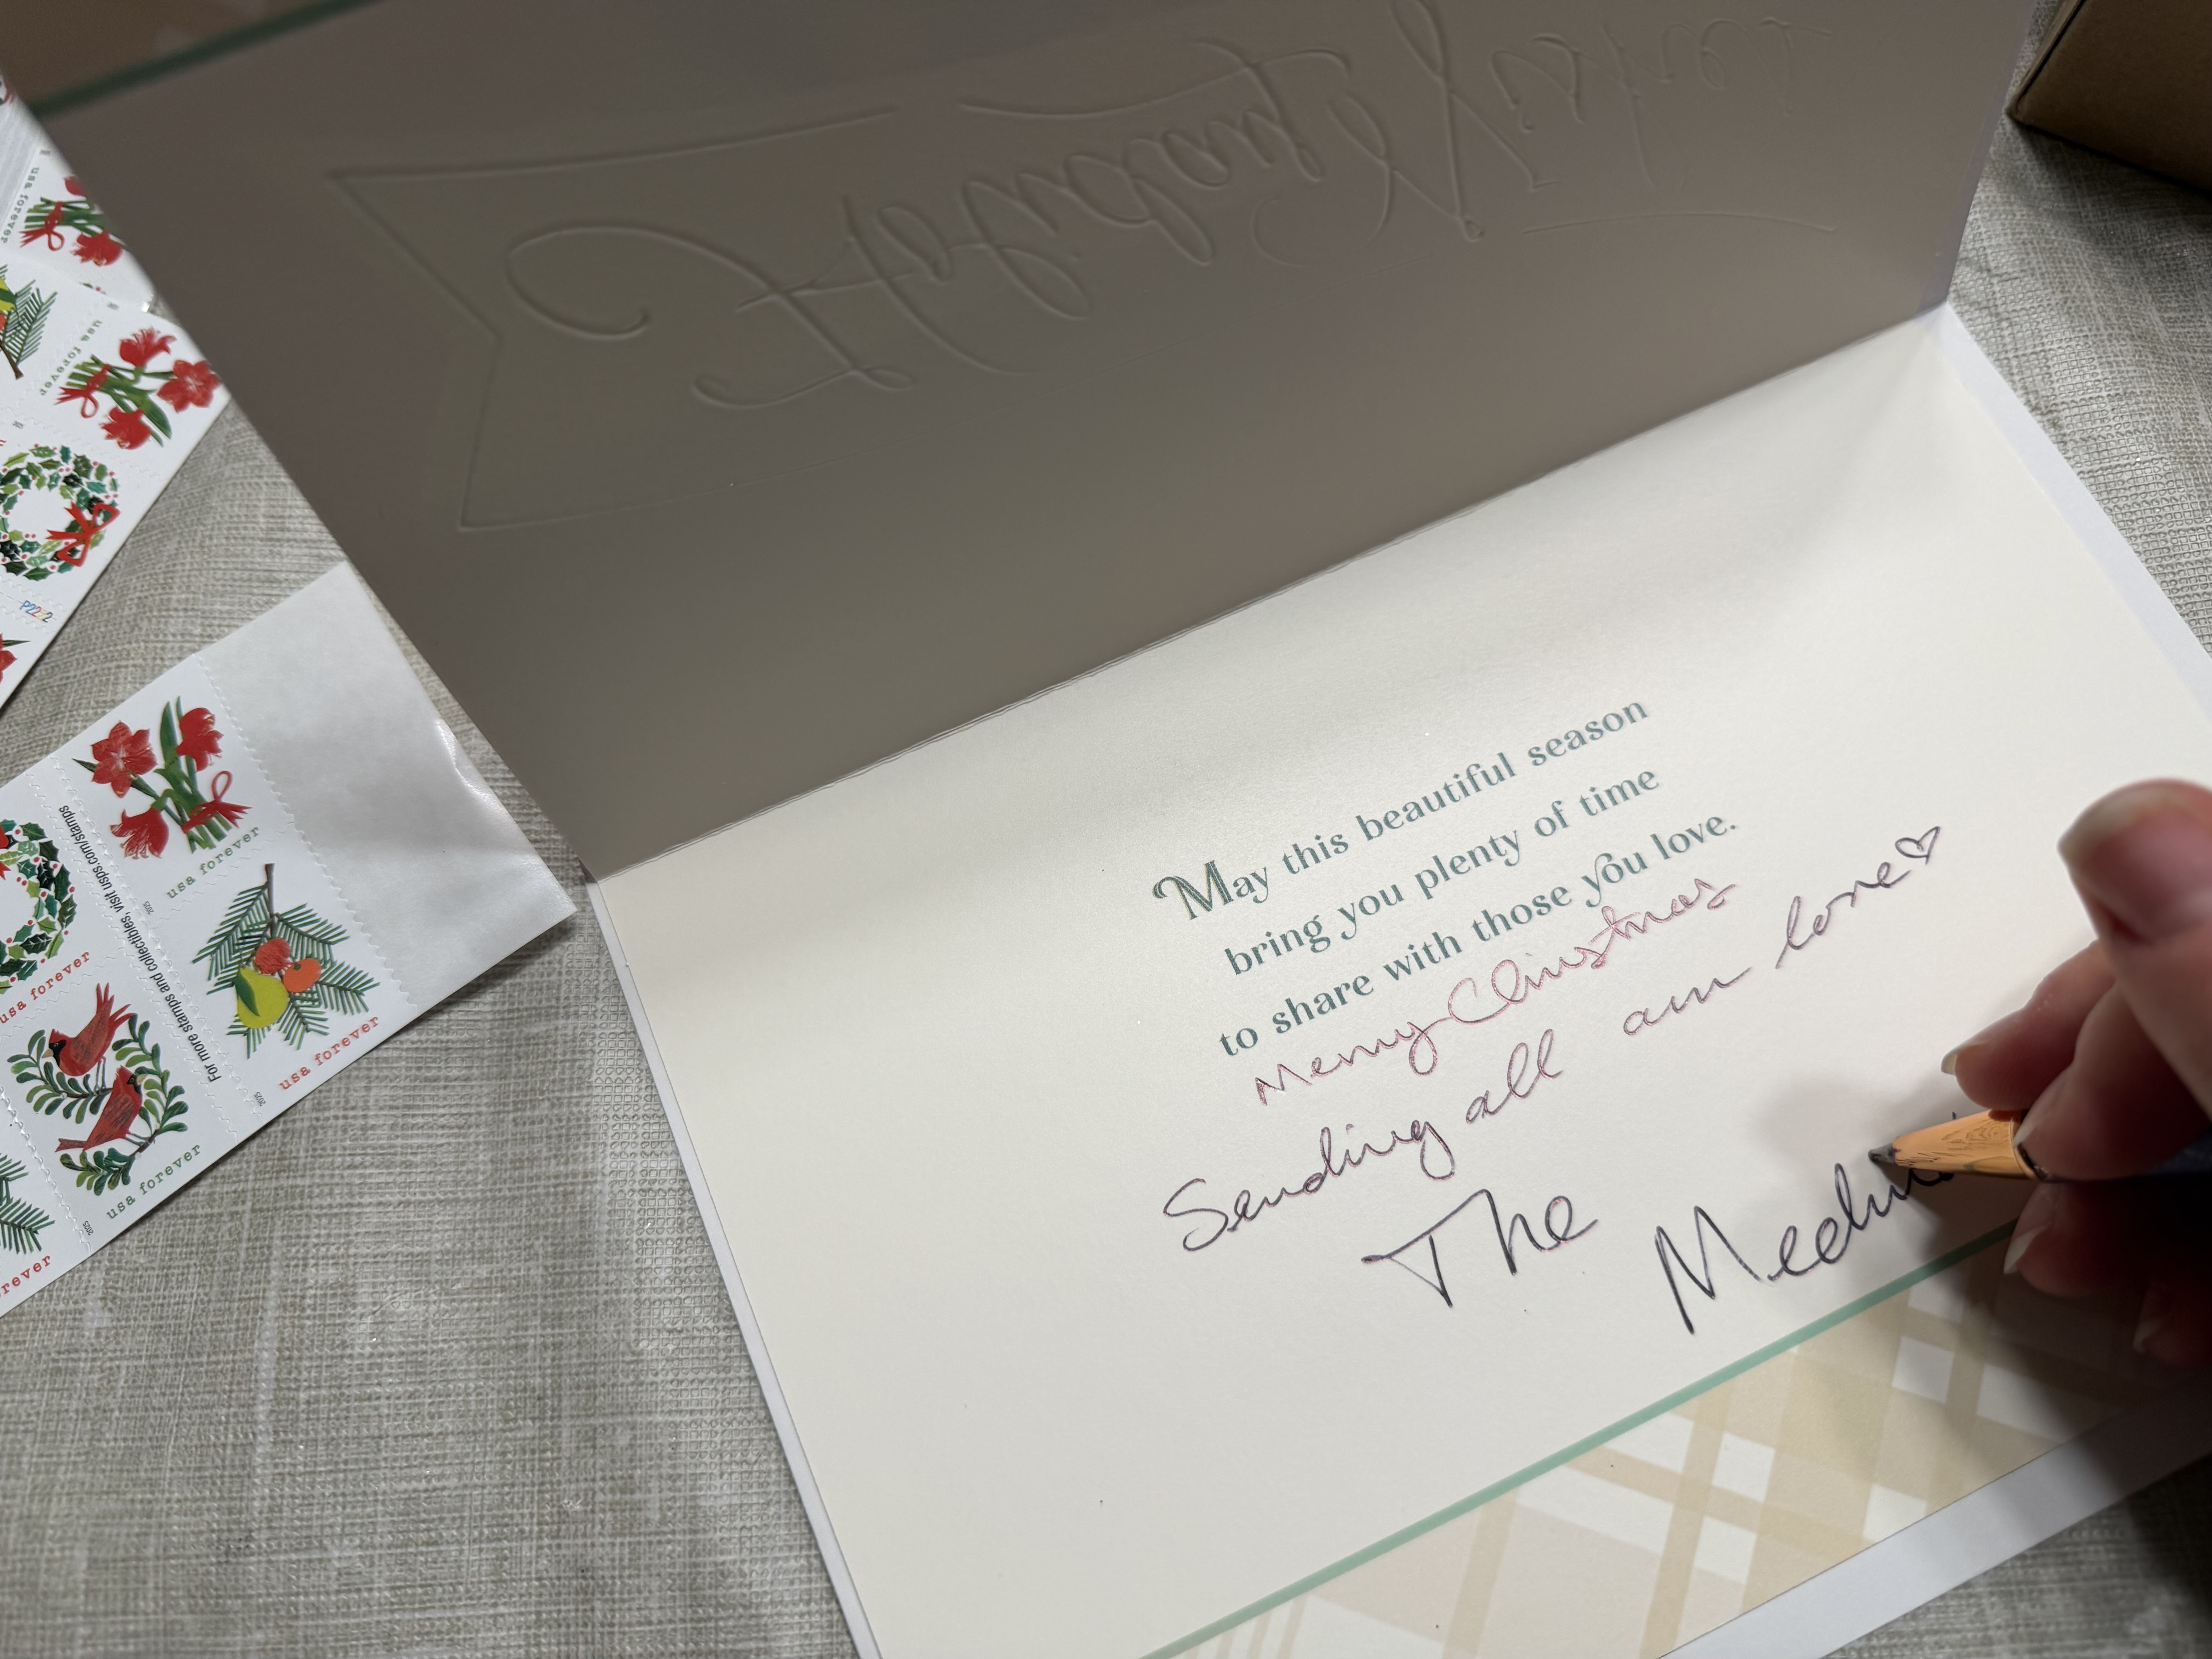 Holiday Wishes
May this beautiful season
bring you plenty of time
to share with those you love.
Merry Christmas
Sending all our love
The
usa forever
usa forever
P2222
usa forever
2025
For more stamps and collectibles, visit usps.com/stamps
usa forever
usa forever
2025
usa forever
2025